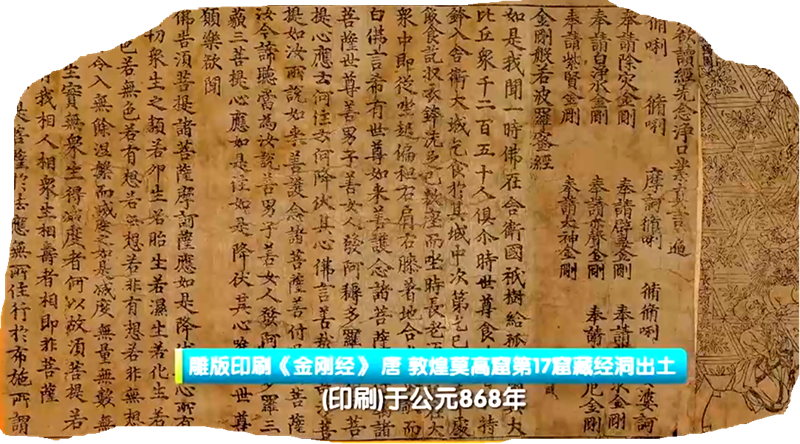 欲讀經先念淨口業真言 遍
脩唎 脩唎 摩訶脩唎 脩脩唎 娑婆訶
奉請除灾金剛 奉請辟毒金剛 奉請
奉請白淨水金剛 奉請赤聲金剛 奉請定除厄金剛
奉請紫賢金剛 奉請大神金剛
金剛般若波羅蜜經
如是我聞一時佛在舍衛國祇樹給孤 大
比丘衆千二百五十人俱尒時世尊食 持
鉢入舍衛大城乞食於其城中次第乞已 處
飯食訖收衣鉢洗足已敷座而坐時長老
衆中即從坐起偏袒右肩右膝著地合
白佛言希有世尊如來善護念諸菩薩
菩薩世尊善男子善女人發阿耨多羅
提心應云何住云何降伏其心佛言善哉
提如汝所說如來善護念諸菩薩善付
汝今諦聽當為汝說善男子善女人發阿耨多羅三
藐三菩提心應如是住如是降伏其心唯
願樂欲聞
佛告須菩提諸菩薩摩訶薩應如是降伏 所有
切衆生之類若卵生若胎生若濕生若化生若
色若無色若有想若無想若非有想若非無想
令入無餘涅槃而滅度之如是滅度無量無數無
生實無衆生得滅度者何以故須菩提若
有我相人相衆生相壽者相即非菩薩
是菩薩於法應無所住行於布施所謂
雕版印刷《金刚经》 唐 敦煌莫高窟第17窟藏经洞出土
(印刷)于公元868年